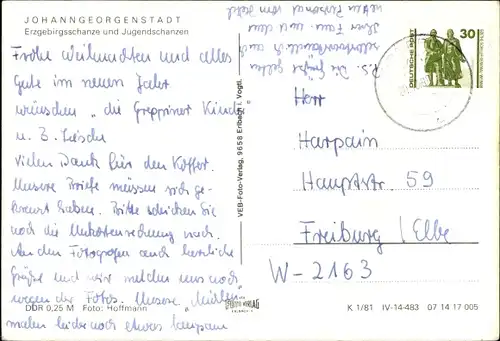 JOHANNGEORGENSTADT
Erzgebirgsschanze und Jugendschanzen
Frohe Weihnachten und alles
Gute im neuen Jahr
wünschen "die Greppiner Kinder"
u. B. Lesche
Vielen Dank für den Koffer.
Unsere Briefe müssen sich ge-
kreuzt haben. Bitte schicken Sie
noch die Unkostenrechnung nach.
An den Fotografen auch herzliche
Grüße und wir melden uns noch
wegen der Fotos. Unsere "Mühlen"
mahlen leider noch etwas langsam
DDR 0,25 M Foto: Hoffmann
P.S. Die Grüße gelten
selbstverständlich auch
Ihrer Fam. und dem
netten Personal vom Hotel
VEB-Foto-Verlag, 9658 Erlbach i. Vogtl.
FOTO VERLAG
ERLBACH
DEUTSCHE POST
30
Herr
Harpain
Hauptstr. 59
Freiburg / Elbe
W-2163
K 1/81 IV-14-483 07 14 17 005